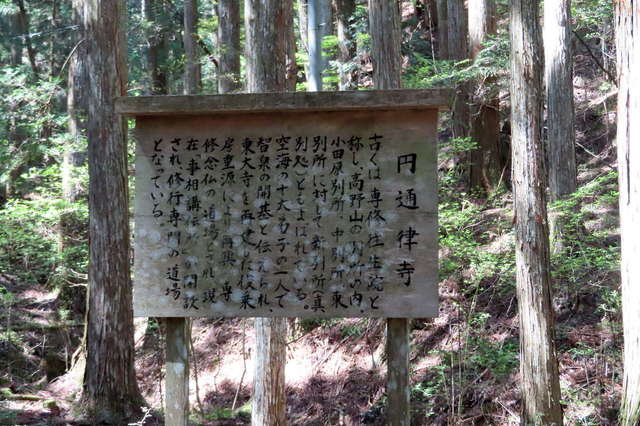 円通律寺
古くは専修往生院と
称し、高野山の別所の内、
小田原別所、中別所、東
別所に対して新別所（真
別処）ともよばれている。
空海の十大弟子の一人で、
智泉の開基と伝えられ、
東大寺を再建した俊乗
房重源により再興、専
修念仏の道場とされ現
在「事相講伝所」が開設
され、修行専門の道場
となっている。